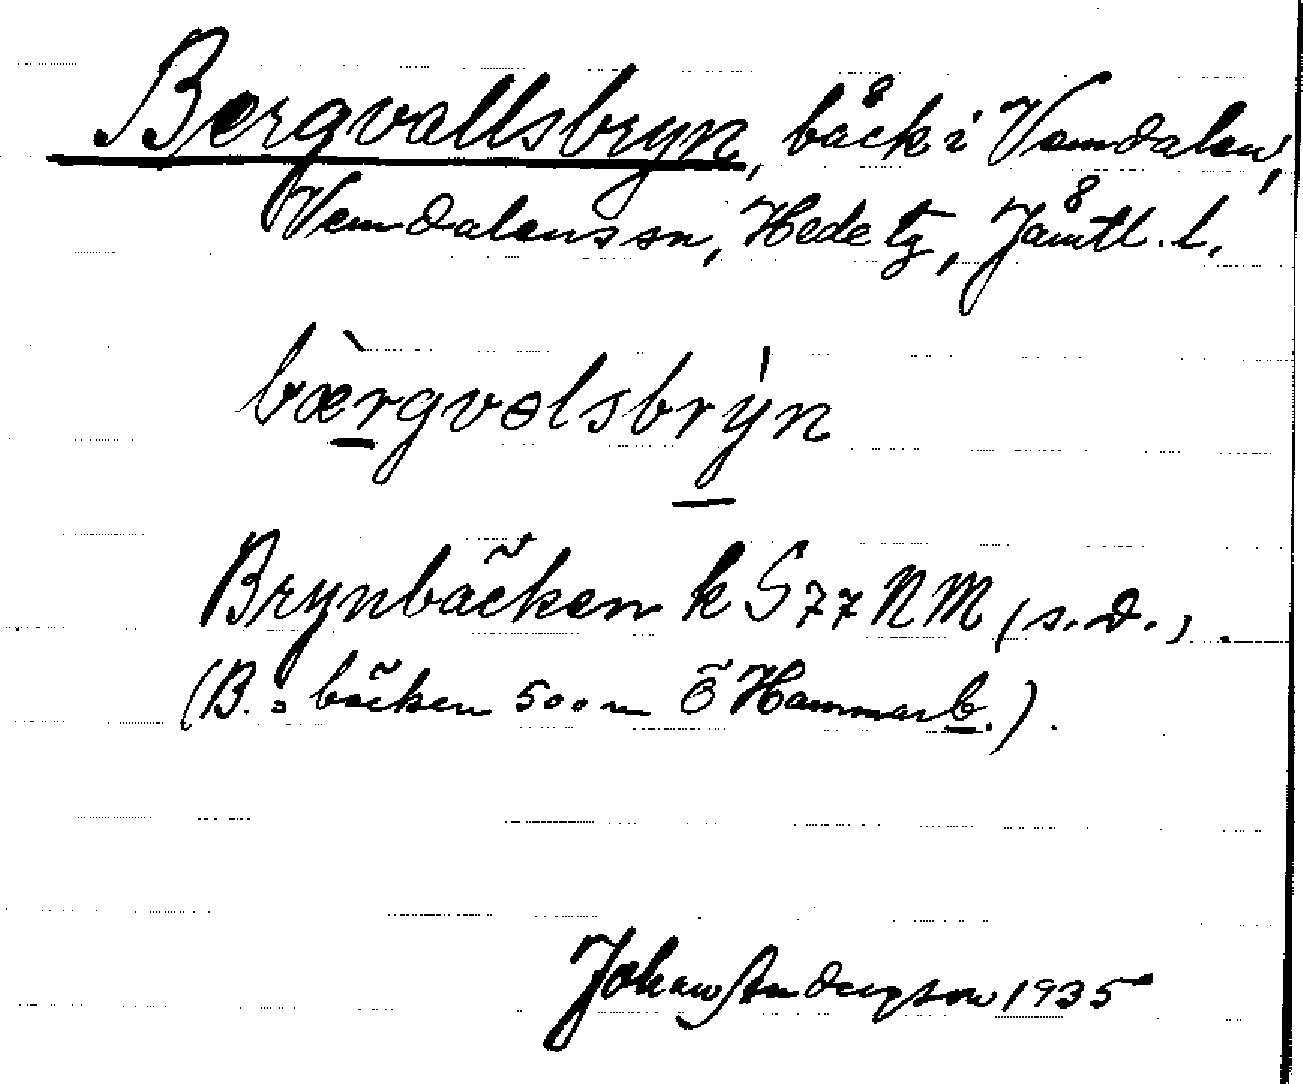 Bergvallsbryn, bäck i Vemdalen,
Vemdalens sn, Hede tg, Jämtl. l.
bærgvəlsbryn
Brynbäcken k S 77 N M (s. d.).
(B. = bäcken 500 m Ö Hammarb.).
Johan Anderzson 1935